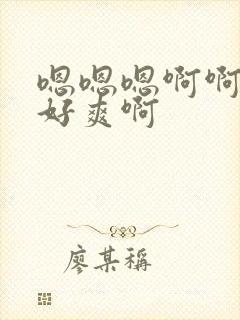 嗯嗯嗯啊啊
好爽啊
廖某稱